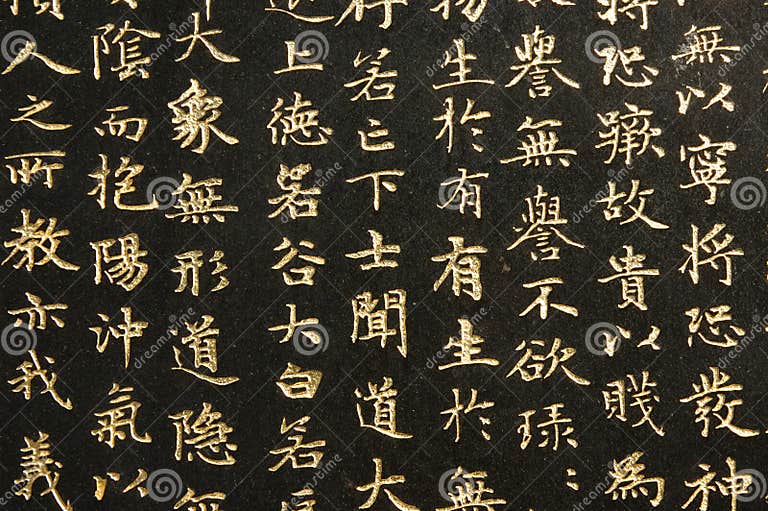 無以寧將恐發神
將恐蹶故貴以賤為
譽無譽不欲琭
物生於有有生於無
存若亡下士聞道大
上德若谷大白若
大象無形道隱無
陰而抱陽沖氣以
人之所教亦我義